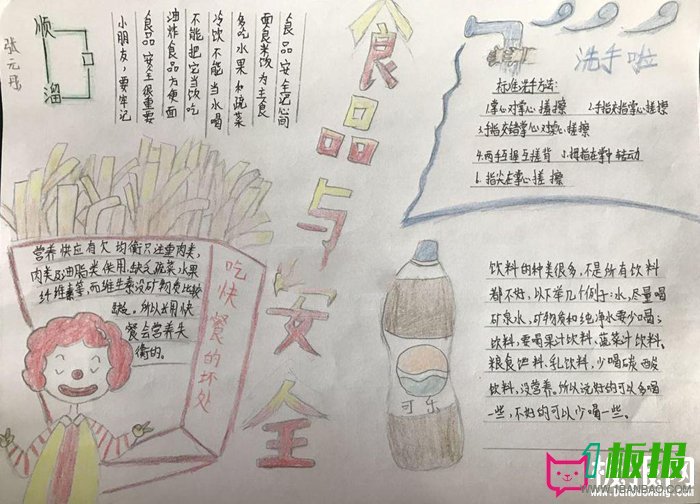 食品与安全
顺
溜
张元丹
食品安全记心间
面食米饭为主食
多吃水果和蔬菜
冷饮不能当水喝
不能把它当饭吃
油炸食品方便面
食品安全很重要
小朋友，要牢记
洗手啦
标准洗手方法：
1.掌心对掌心搓擦 2.手指交指掌心搓擦
3.手指交错掌心对掌心搓擦
4.两手互握互搓背 5.拇指在掌中转动
6.指尖在掌心搓擦
营养供应有欠均衡只注重肉类，
肉类及油脂类使用，缺乏蔬菜水果
纤维素等，而维生素及矿物质比较
所以长期快
餐会营养失
衡的。
吃快餐的坏处
可乐
饮料的种类很多，不是所有饮料
都不好，以下举几个例子：水，尽量喝
矿泉水，矿物质和纯净水要少喝；
饮料，要喝果汁饮料、蔬菜汁饮料、
粮食饮料、乳饮料，少喝碳酸
饮料，没营养。所以说好的可以多喝
一些，不好的可以少喝一些。
1板报
WWW.1BANBAO.COM